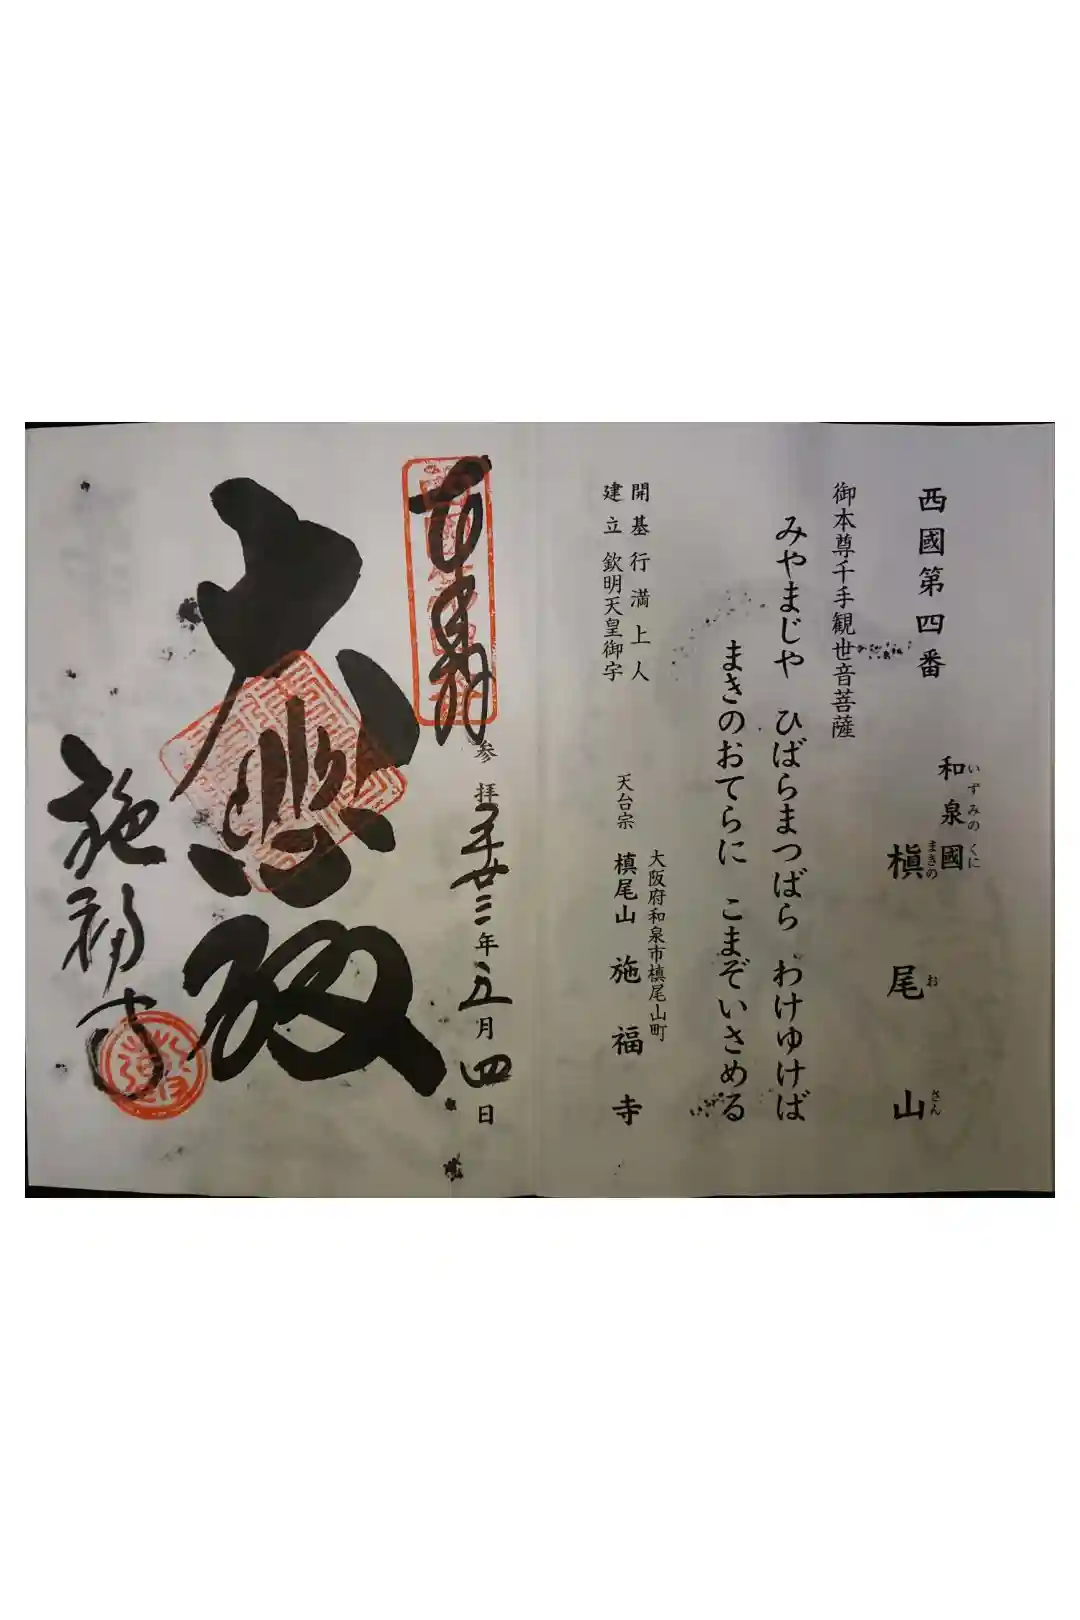 西國第四番
和泉國
いずみのくに
槇尾山
まきのおさん
御本尊千手観世音菩薩
みやまじや ひばらまつばら わけゆけば
まきのおてらに こまぞいさめる
開基 行満上人
建立 欽明天皇御宇
大阪府和泉市槙尾山町
天台宗 槙尾山 施福寺
奉拝
参拝 平廿三年五月四日
大悲殿
施福寺